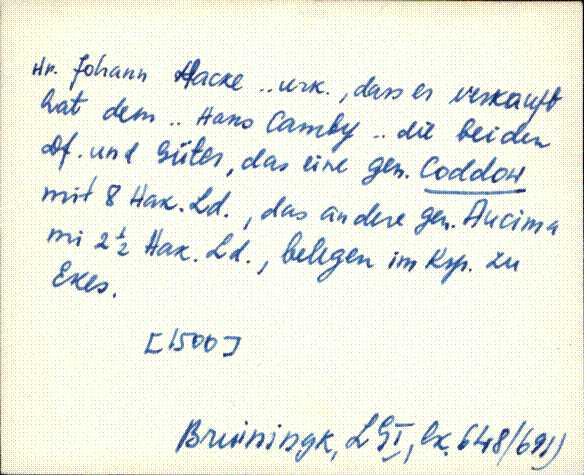 Hr. Johann Hacke .. urk., dass er verkauft
hat dem .. Hans Camby .. die beiden
Df. und Güter, das eine gen. Coddow
mit 8 Hak. Ld., das andere gen. Aucima
mi 2 ½ Hak. Ld., belegen im Ksp. zu
Ekes.
[1500]
Bruiningk, LGI, 648/691)